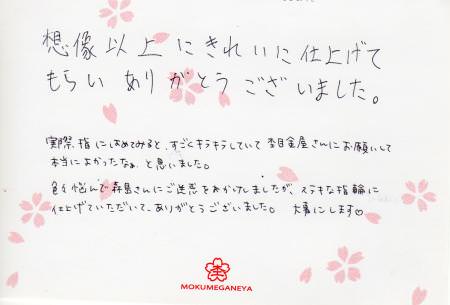 想像以上にきれいに仕上げて
もらいありがとうございました。
実際、指にはめてみると、すごくキラキラしていて 杢目金屋さんにお願いして
本当によかったなぁ、と思いました。
色々悩んで森島さんにご迷惑をおかけしましたが、ステキな指輪に
仕上げていただいて、ありがとうございました。 大事にします♡
MOKUMEGANEYA